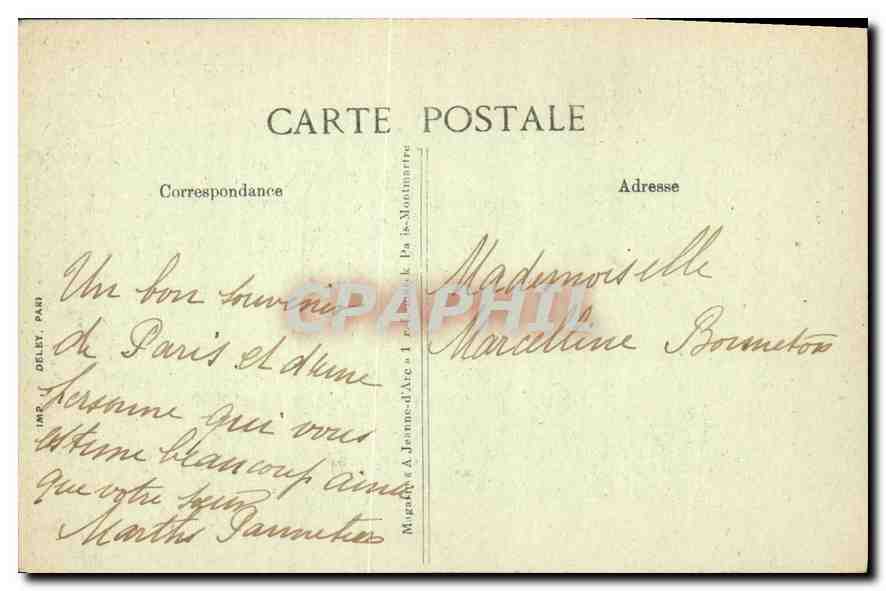 CARTE POSTALE
Correspondance
Un bon souvenir
de Paris et d'une
personne qui vous
estime beaucoup ainsi
que votre sœur
Marthe
Magasins A Jeanne-d'Arc Paris-Montmartre
IMP. DELEY, PARI
Adresse
Mademoiselle
Marcelline Bonneton
CPAPHIL